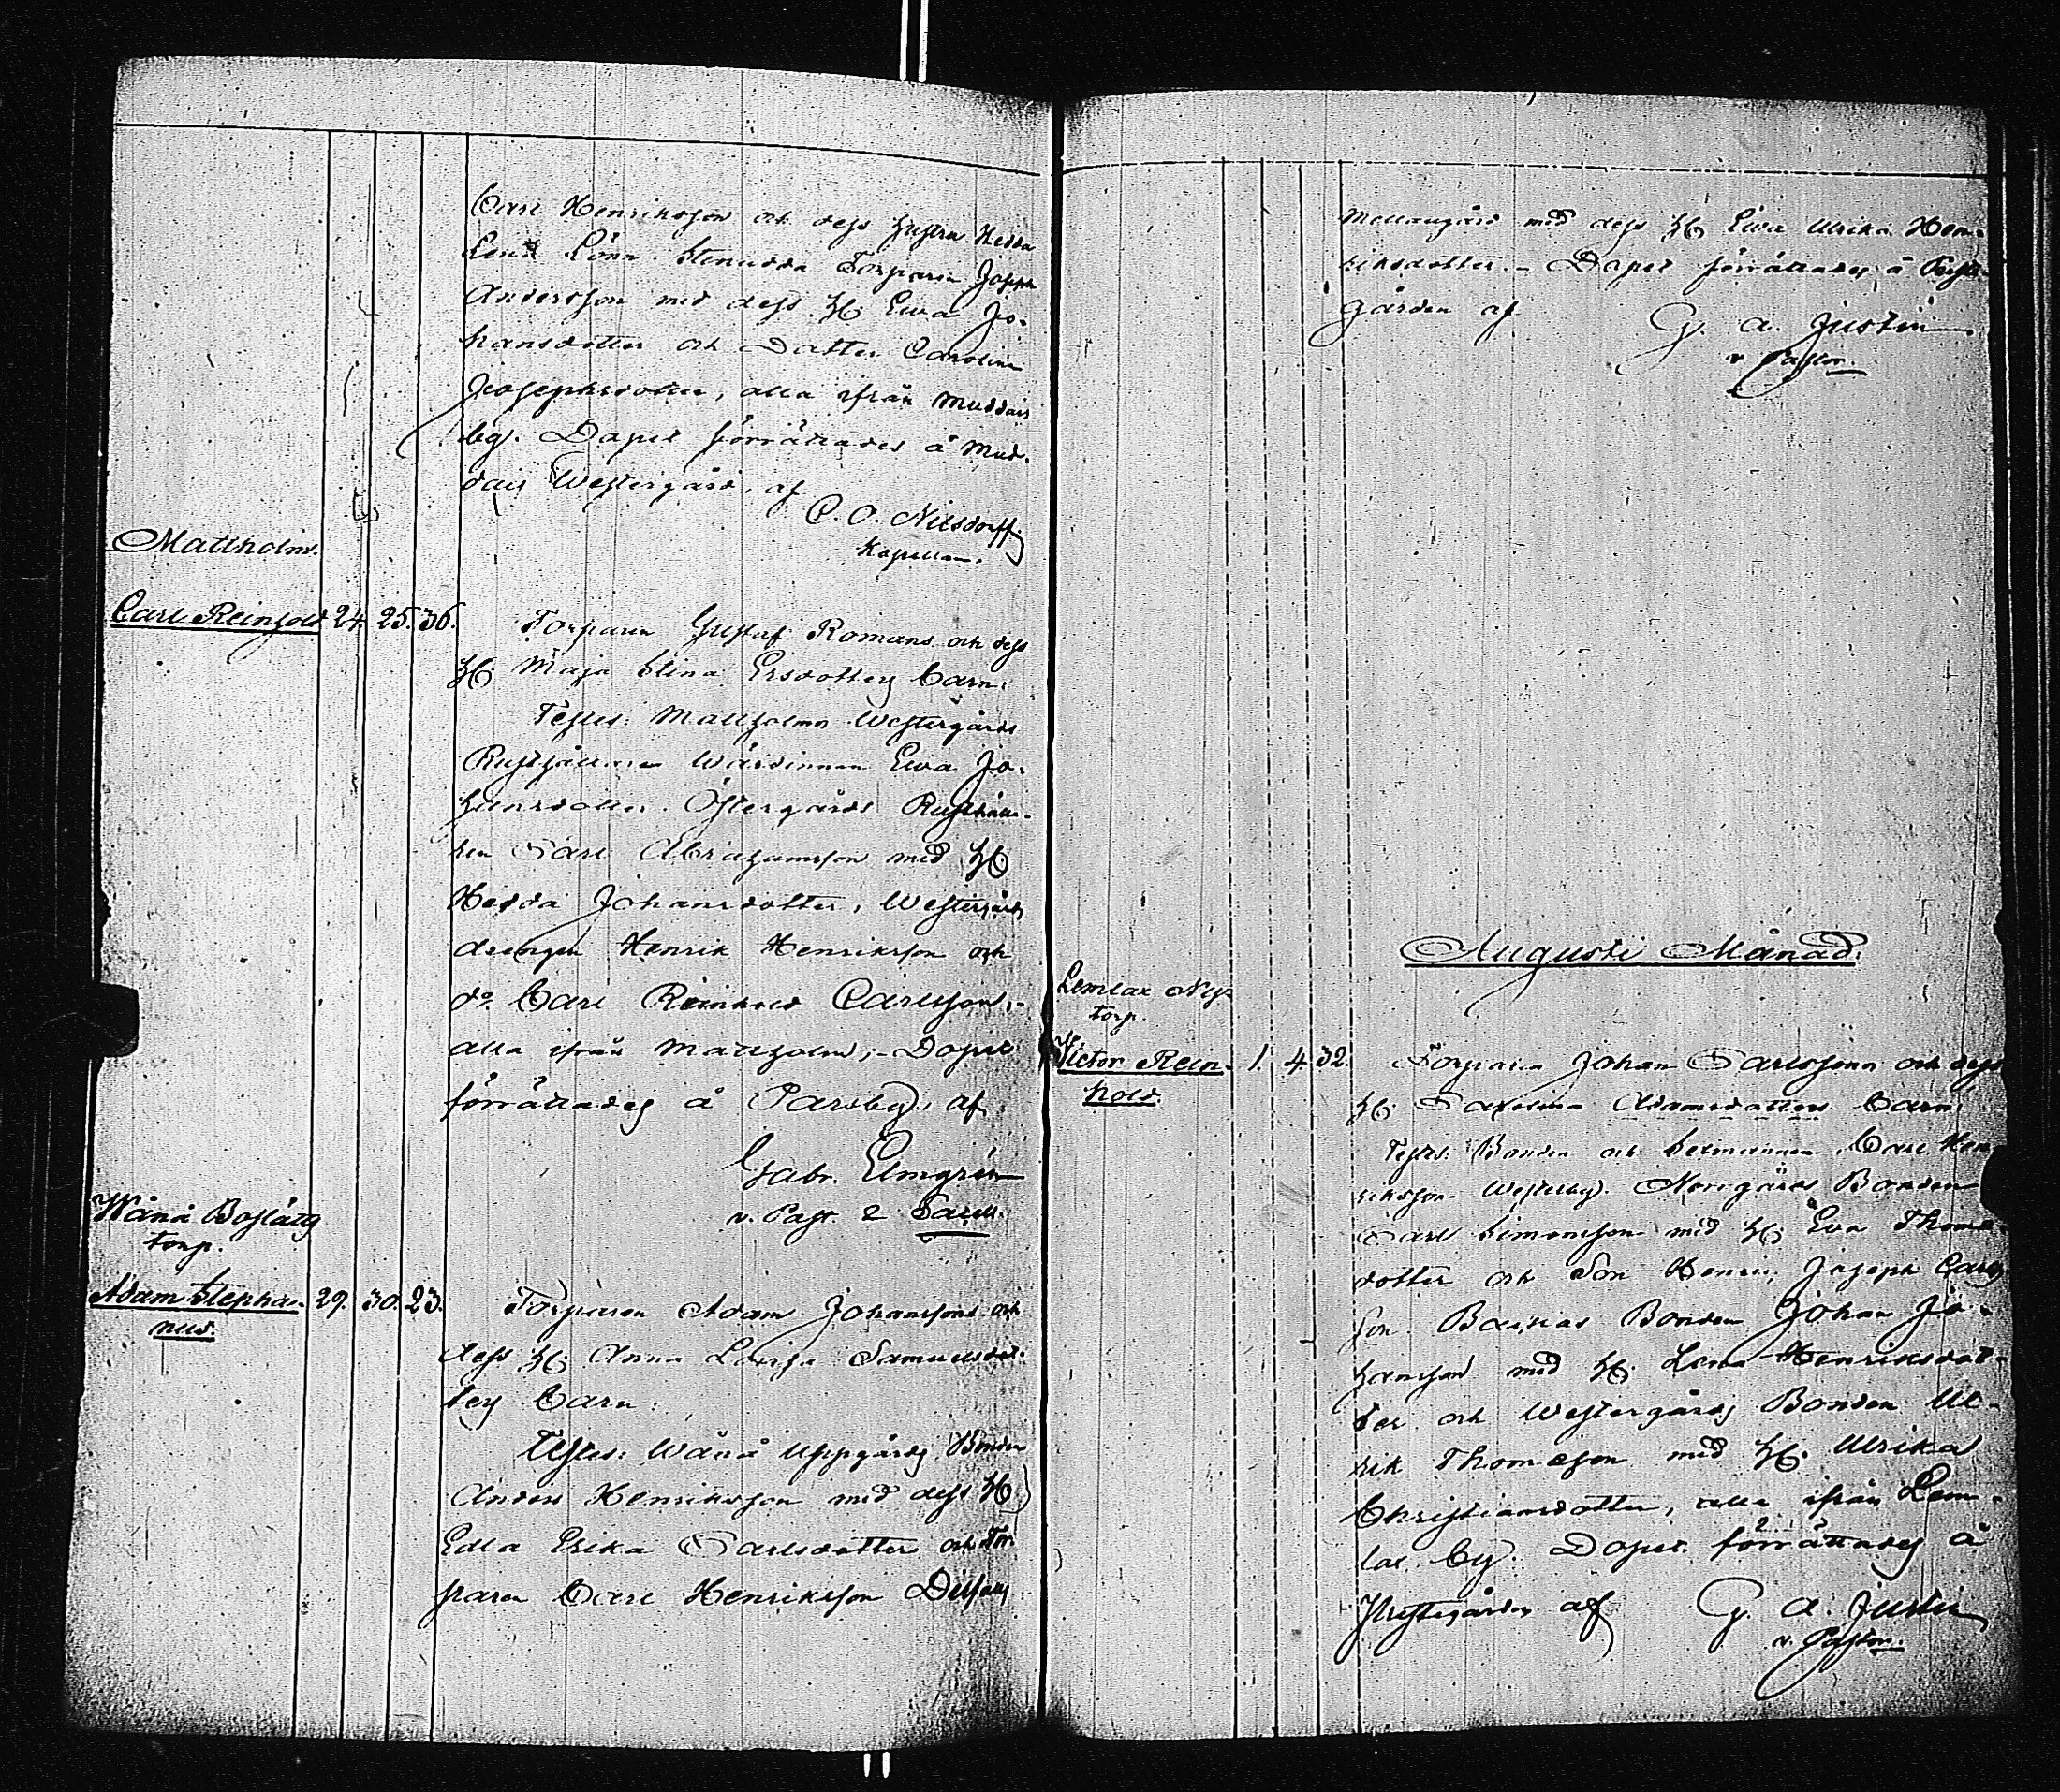 Carl Henriksson och dess hustru Hedda
Lena Lönn Stenudda Torparen Joseph
Andersson med dess H. Ewa Jo-
hansdotter och Dotter Carolina
Josephsdotter, alla ifrån Muddais
by. Dopet förrättades å Mud-
dais Westergård, af
C. O. Nilsdorff
Kapellan.
Mattholm.
Carl Reinhold 24. 25. 36. Torparen Gustaf Romans och dess
H. Maja Stina Ersdotters Barn.
Testes: Mattholms Westergårds
Rusthållare Wärdinnan Ewa Jo-
hansdotter. Östergårds Rusthålla-
ren Carl Abrahamsson med H
Hedda Johansdotter, Westergårds
drengen Henrik Henriksson och
do Carl Reinhold Carlsson,
alla ifrån Mattholm; - Dopet
förrättades å Parsby, af
Gabr. Elmgrén
v. Past. & Sacell.
Wånå Boslätts
torp.
Adam Stepha- 29. 30. 23. Torparen Adam Johanssons och
nus.
dess H. Anna Lovisa Samuelsdot-
ters Barn.
Testes: Wånå Uppgårds Bonden
Anders Henriksson med dess H
Edla Erika Carlsdotter och Tor-
paren Carl Henriksson
Mellangård med dess H Ewa Ulrika Hen-
riksdotter. - Dopet förrättades å Prest-
gården af
G. A. Justin
v Pastor.
Augusti Månad.
Lemlax Ny-
torp.
Victor Rein- 1. 4. 32. Torparen Johan Carlssons och dess
hold.
H. Carolina Adamsdotters Barn
Testes: Bonden och Sexmannen Carl Hen-
riksson Westerby. Norrgårds Bonden
Carl Simonsson med H. Eva Thoma
dotter och Son Henric, Joseph Carls
son. Backas Bonden Johan Jo-
hansson med H. Lena Henriksdot-
ter och Westergårds Bonden Ul-
rik Thomasson med H. Ulrika
Christiansdotter, alla ifrån Lem-
lax by. Dopet förrättades å
Prestgården af G. A. Justin
v. Pastor.